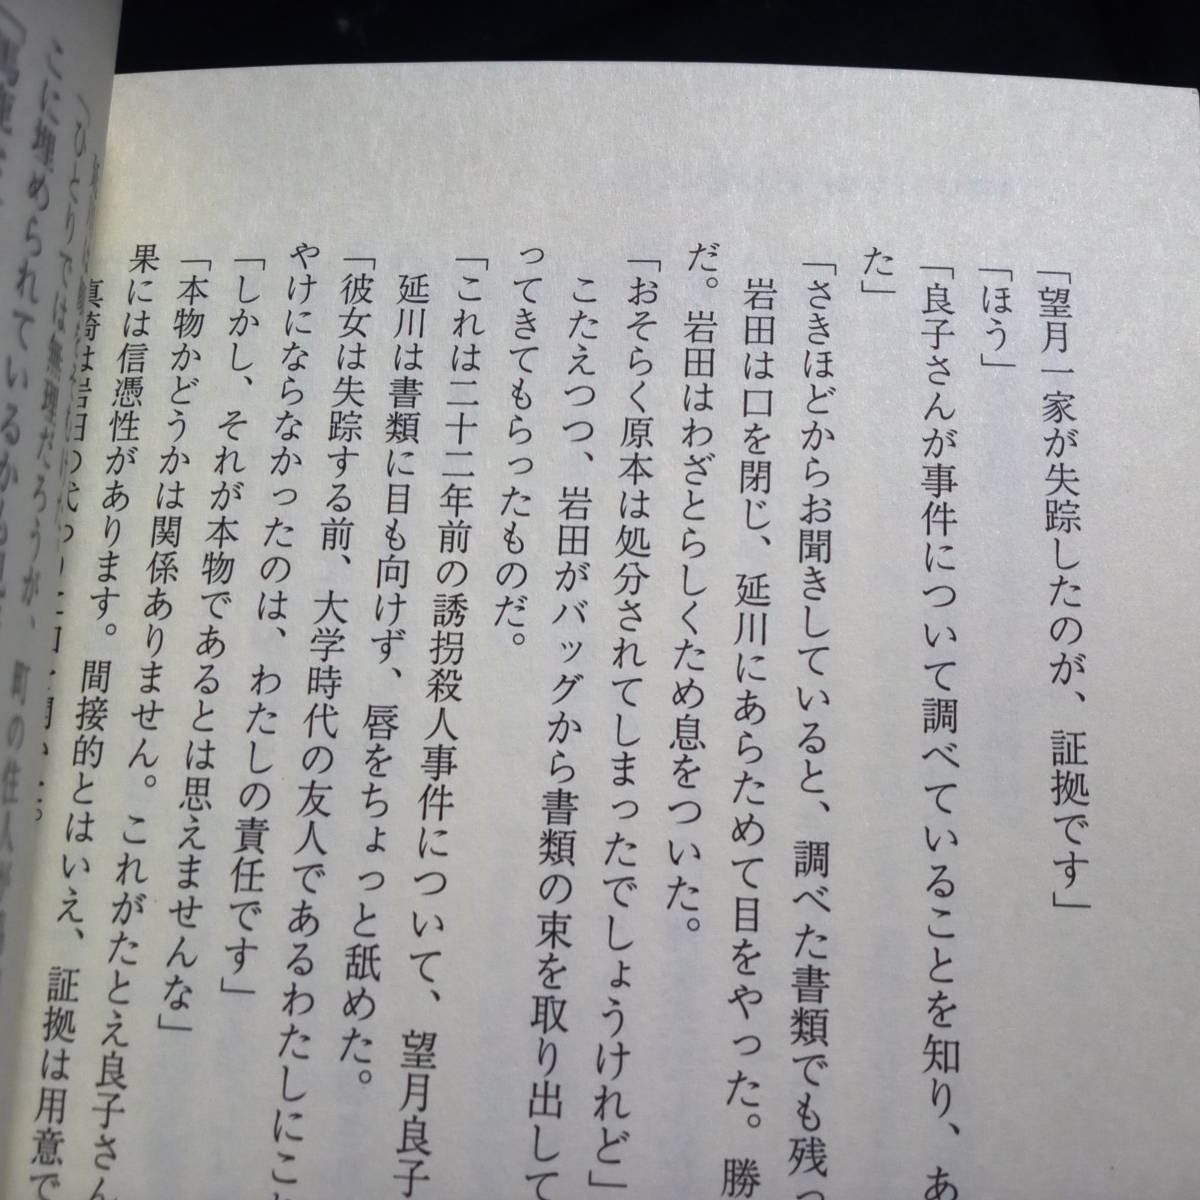 「望月一家が失踪したのが、証拠です」
「ほう」
「良子さんが事件について調べていることを知り、あ
た」
「さきほどからお聞きしていると、調べた書類でも残っ
岩田は口を閉じ、延川にあらためて目をやった。勝
だ。岩田はわざとらしくため息をついた。
「おそらく原本は処分されてしまったでしょうけれど」
こたえつつ、岩田がバッグから書類の束を取り出して
ってきてもらったものだ。
「これは二十二年前の誘拐殺人事件について、望月良子
延川は書類に目も向けず、唇をちょっと舐めた。
「彼女は失踪する前、大学時代の友人であるわたしにこ
やけにならなかったのは、わたしの責任です」
「しかし、それが本物であるとは思えませんな」
「本物かどうかは関係ありません。これがたとえ良子さん
果には信憑性があります。間接的とはいえ、証拠は用意で
真崎は岩田の代わりに口を開いた。
「ひとりでは無理だろうが、町の住人が
こに埋められているかも